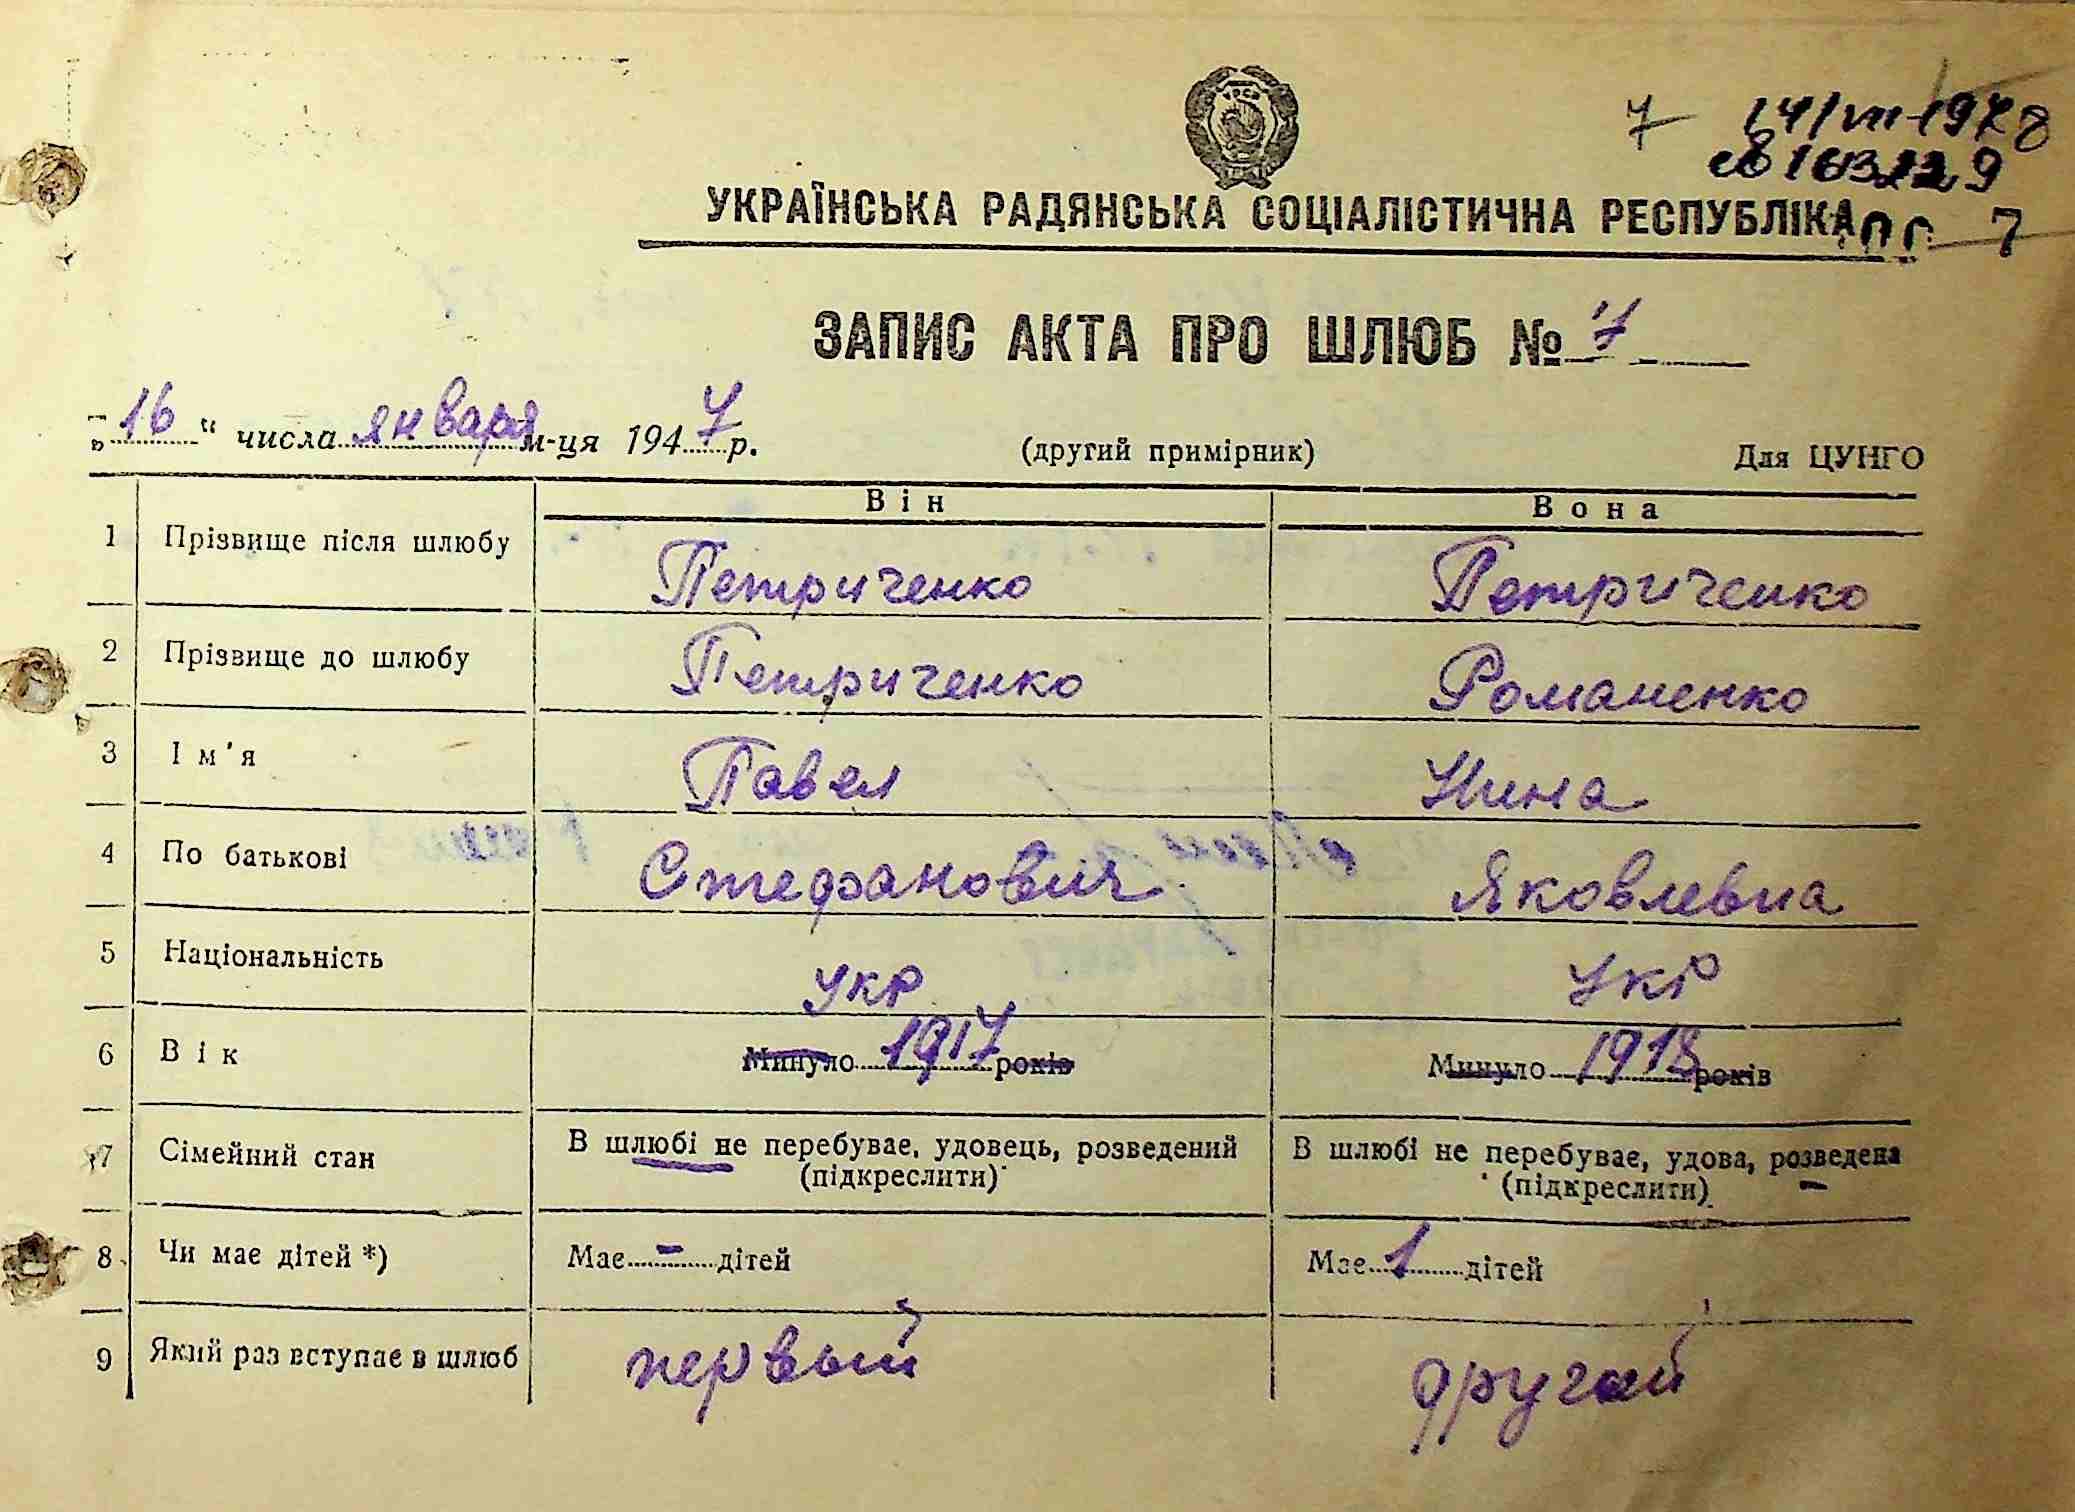 УРСР
7 14/VII-1978
16
9
УКРАЇНСЬКА РАДЯНСЬКА СОЦІАЛІСТИЧНА РЕСПУБЛІКА
7
ЗАПИС АКТА ПРО ШЛЮБ № 7
„16“ числа января м-ця 1947 р. (другий примірник) Для ЦУНГО
Він Вона
1 Прізвище після шлюбу Петриченко Петриченко
2 Прізвище до шлюбу Петриченко Романенко
3 Ім'я Павел Нина
4 По батькові Стефанович Яковлевна
5 Національність укр укр
6 Вік Минуло 1917 років Минуло 1918 років
7 Сімейний стан В шлюбі не перебуває, удовець, розведений В шлюбі не перебуває, удова, розведена
(підкреслити) (підкреслити)
8 Чи має дітей *) Має - дітей Має 1 дітей
9 Який раз вступає в шлюб первый другой